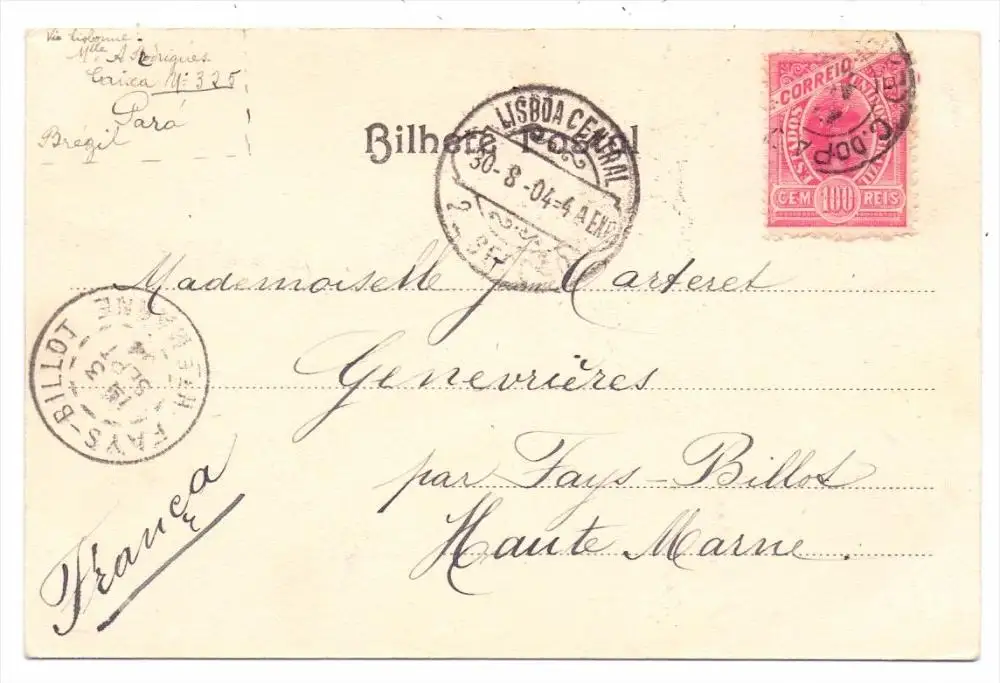 Via Lisbonne.
Mlle A Rodrigues
Caixa Nº 325
Pará
Brezil
Bilhete Postal
LISBOA CENTRAL
30-8-04-4
CORREIO
ESTADOS UNIDOS
BRAZIL
CEM 100 REIS
Mademoiselle J. Carteret
Genevrières
par Fays-Billot
Haute Marne.
França
FAYS-BILLOT
HTE MARNE
SEPT